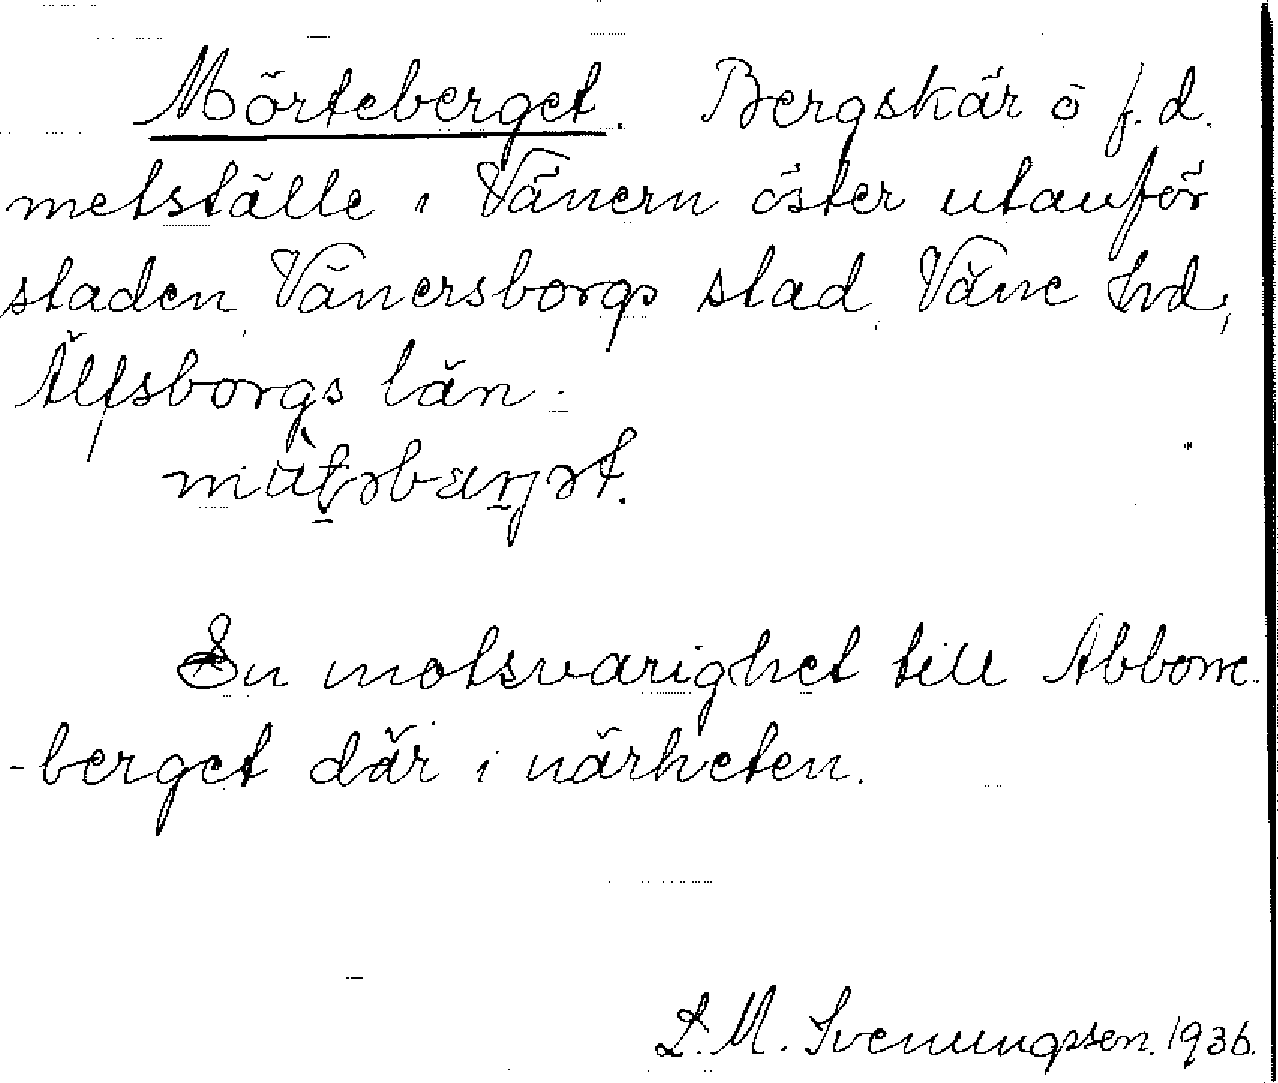 Mörteberget. Bergskär ö f.d.
metställe i Vänern öster utanför
staden, Vänersborgs stad, Väne hd,
Älfsborgs län.
En motsvarighet till Abborre-
-berget där i närheten.
L. M. Svenungsson. 1936.